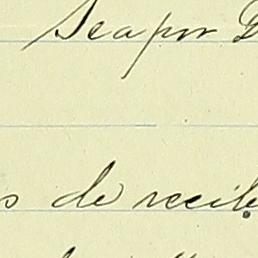 Sea por D
s de recib